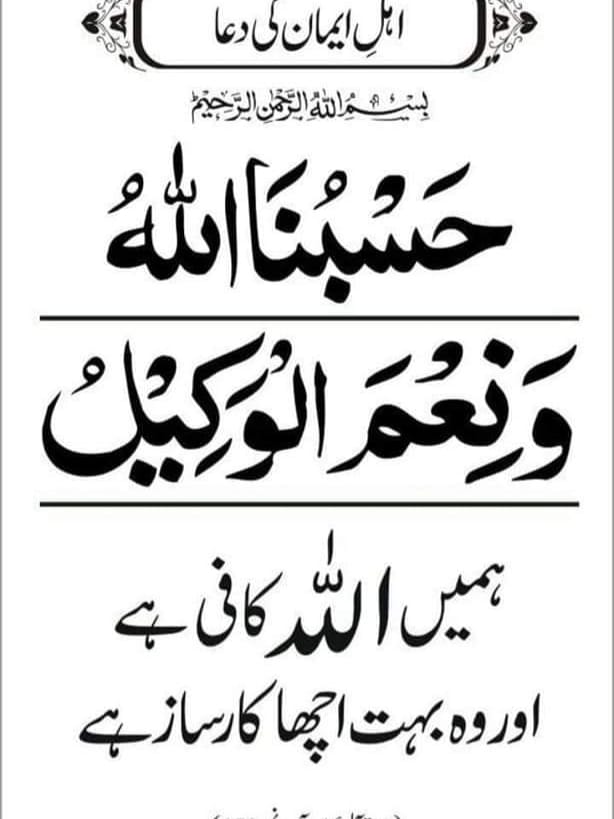 اہلِ ایمان کی دعا
بِسْمِ اللهِ الرَّحْمٰنِ الرَّحِيْمِ
حَسْبُنَا اللهُ
وَنِعْمَ الْوَكِيْلُ
ہمیں اللہ کافی ہے
اور وہ بہت اچھا کارساز ہے